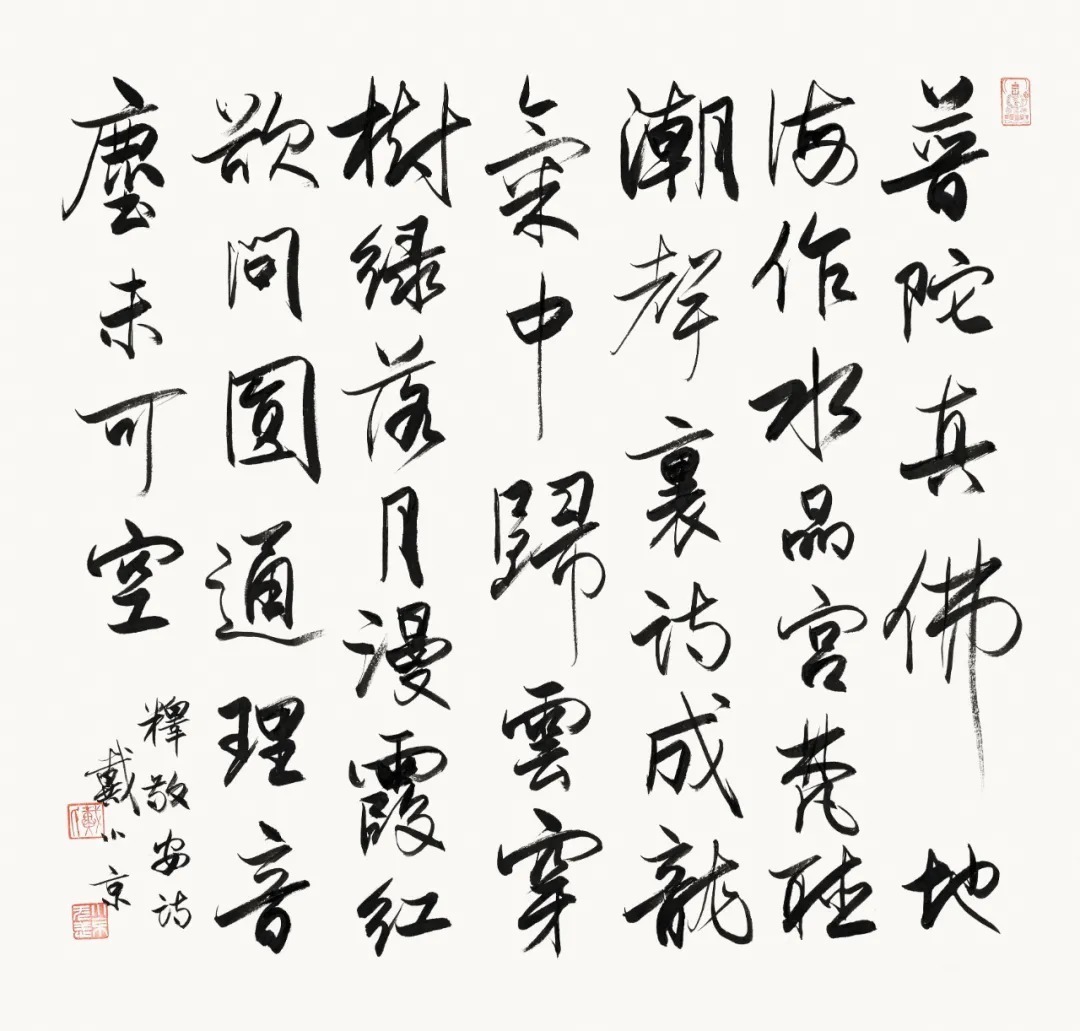 普陀真佛地
海作水晶宮梵聽
潮聲裏詩成龍
氣中歸雲穿
樹緑落月漫霞紅
欲問圓通理音
塵未可空
釋敬安詩
戴小京